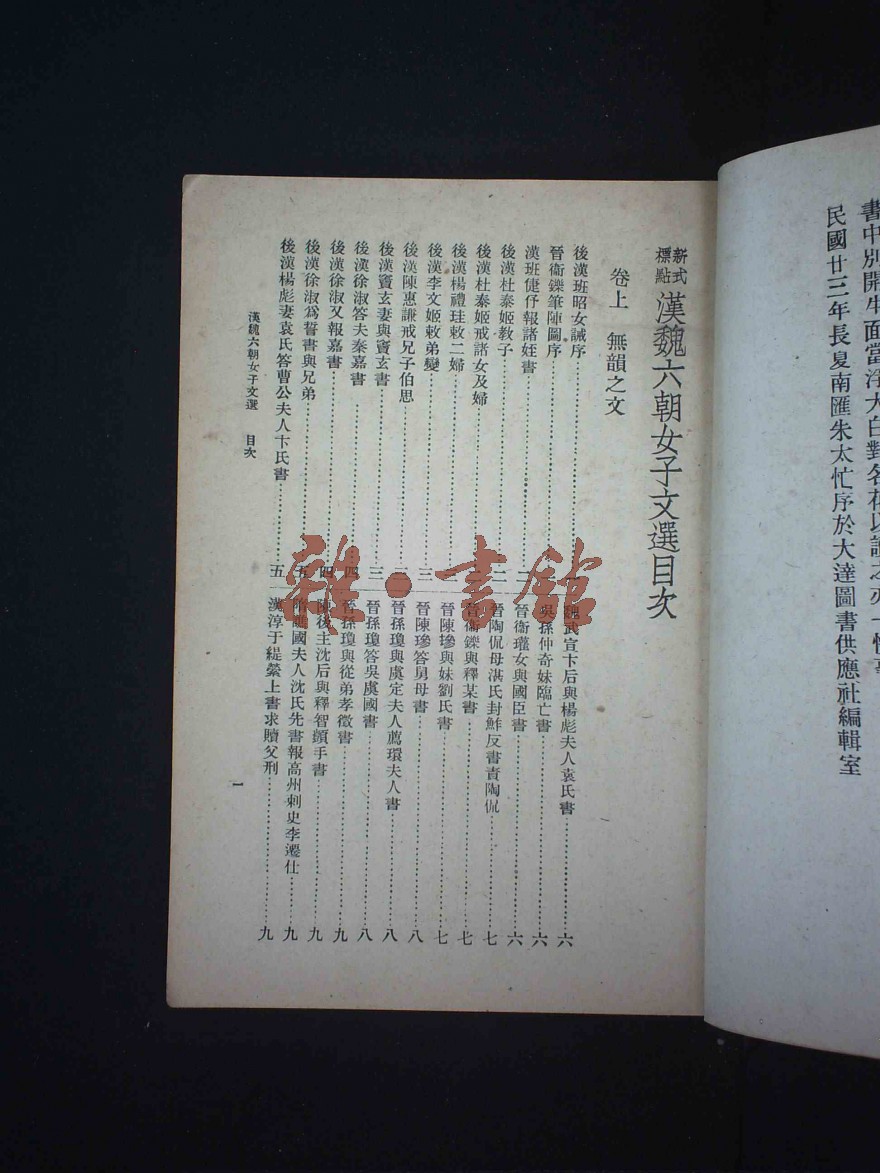 書中別開生面當浮大白對
民國廿三年長夏南匯朱太忙序於大達圖書供應社編輯室
新式標點 漢魏六朝女子文選目次
卷上 無韻之文
後漢班昭女誡序……一
晉衞鑠筆陣圖序……
漢班倢伃報諸姪書……
後漢杜泰姬教子……二
後漢杜泰姬戒諸女及婦……
後漢楊禮珪敕二婦……
後漢李文姬敕弟變……三
後漢陳惠謙戒兄子伯思……
後漢竇玄妻與竇玄書……三
後漢徐淑答夫秦嘉書……四
後漢徐淑又報嘉書……四
後漢徐淑爲誓書與兄弟……五
後漢楊彪妻袁氏答曹公夫人卞氏書……五
魏武宣卞后與楊彪夫人袁氏書……六
吳孫仲奇妹臨亡書……六
晉衞瓘女與國臣書……六
晉陶侃母湛氏封鮓反書責陶侃……七
晉衞鑠與釋某書……七
晉陳㻸與妹劉氏書……七
晉陳㻸答舅母書……八
晉孫瓊與虞定夫人薦環夫人書……八
晉孫瓊答吳虞國書……八
晉孫瓊與從弟孝徵書……九
陳後主沈后與釋智顗手書……九
隋譙國夫人沈氏先書報高州刺史李遷仕……九
漢淳于緹縈上書求贖父刑……九
漢魏六朝女子文選 目次
一
雜·書館